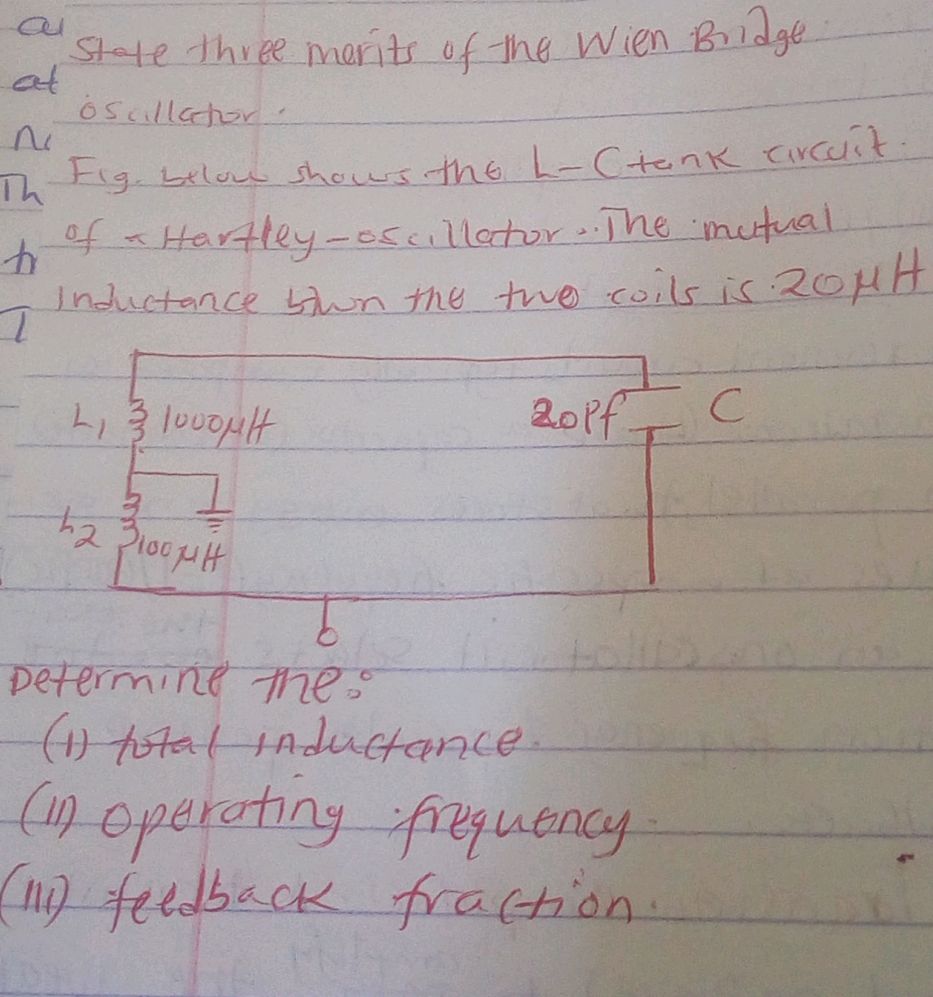 a
State three merits of the Wien Bridge
at
oscillator.
N
Fig. below shows the L-C tank circuit.
Th
of a Hartley-oscillator. The mutual
h
inductance btwn the two coils is 20μH
L1 1000μH
20Pf C
L2 100μH
b
Determine the:
(i) total inductance.
(ii) operating frequency.
(iii) feedback fraction.